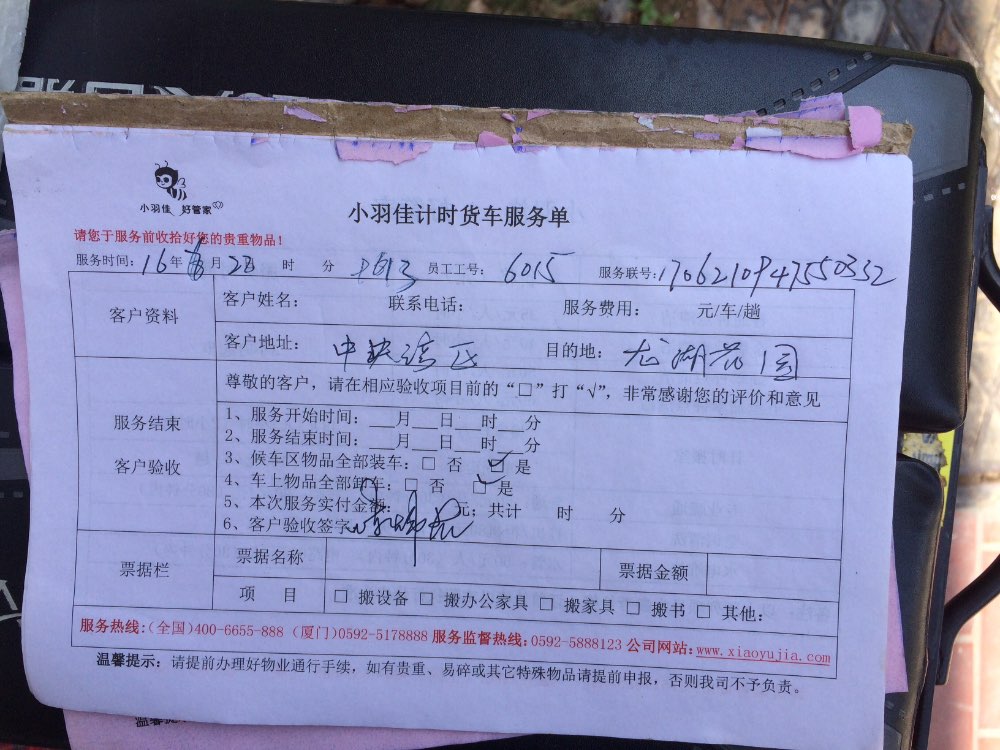 小羽佳 好管家
小羽佳计时货车服务单
请您于服务前收拾好您的贵重物品!
服务时间: 16年 月 28 时 分 员工工号: 6015 服务联号: 1706210947550332
客户资料
客户姓名: 联系电话: 服务费用: 元/车/趟
客户地址: 中铁湾区 目的地: 龙湖花园
服务结束
客户验收
尊敬的客户，请在相应验收项目前的“□”打“√”，非常感谢您的评价和意见
1、服务开始时间: ___月___日___时___分
2、服务结束时间: ___月___日___时___分
3、候车区物品全部装车: □ 否 □ 是
4、车上物品全部卸车: □ 否 □ 是
5、本次服务实付金额: 元; 共计 时 分
6、客户验收签字
票据栏
票据名称 票据金额
项 目 □ 搬设备 □ 搬办公家具 □ 搬家具 □ 搬书 □ 其他:
服务热线:(全国)400-6655-888 (厦门)0592-5178888 服务监督热线:0592-5888123 公司网站:www.xiaoyujia.com
温馨提示: 请提前办理好物业通行手续，如有贵重、易碎或其它特殊物品请提前申报，否则我司不予负责。